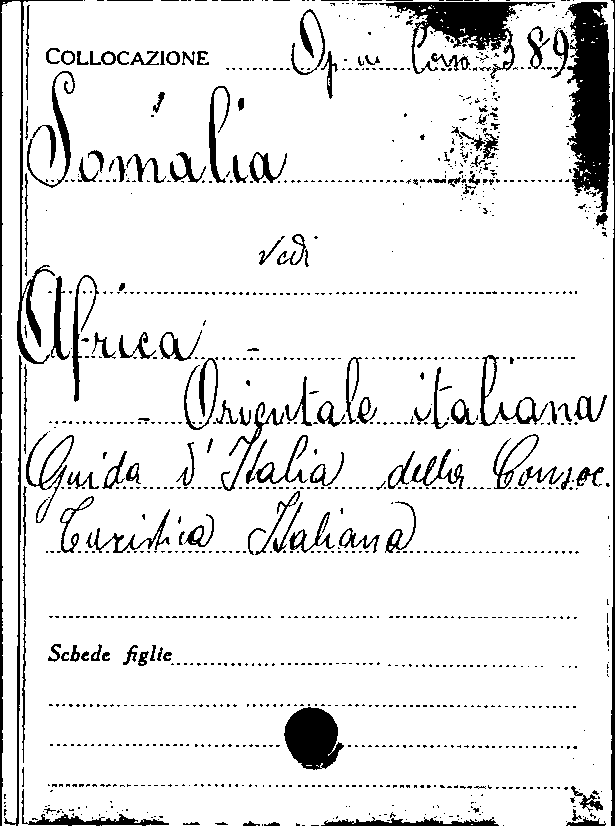 COLLOCAZIONE Op. in Corso 389
Somalia
Vedi
Africa -
- Orientale italiana
Guida d'Italia della Consoc.
Turistica Italiana
Schede figlie